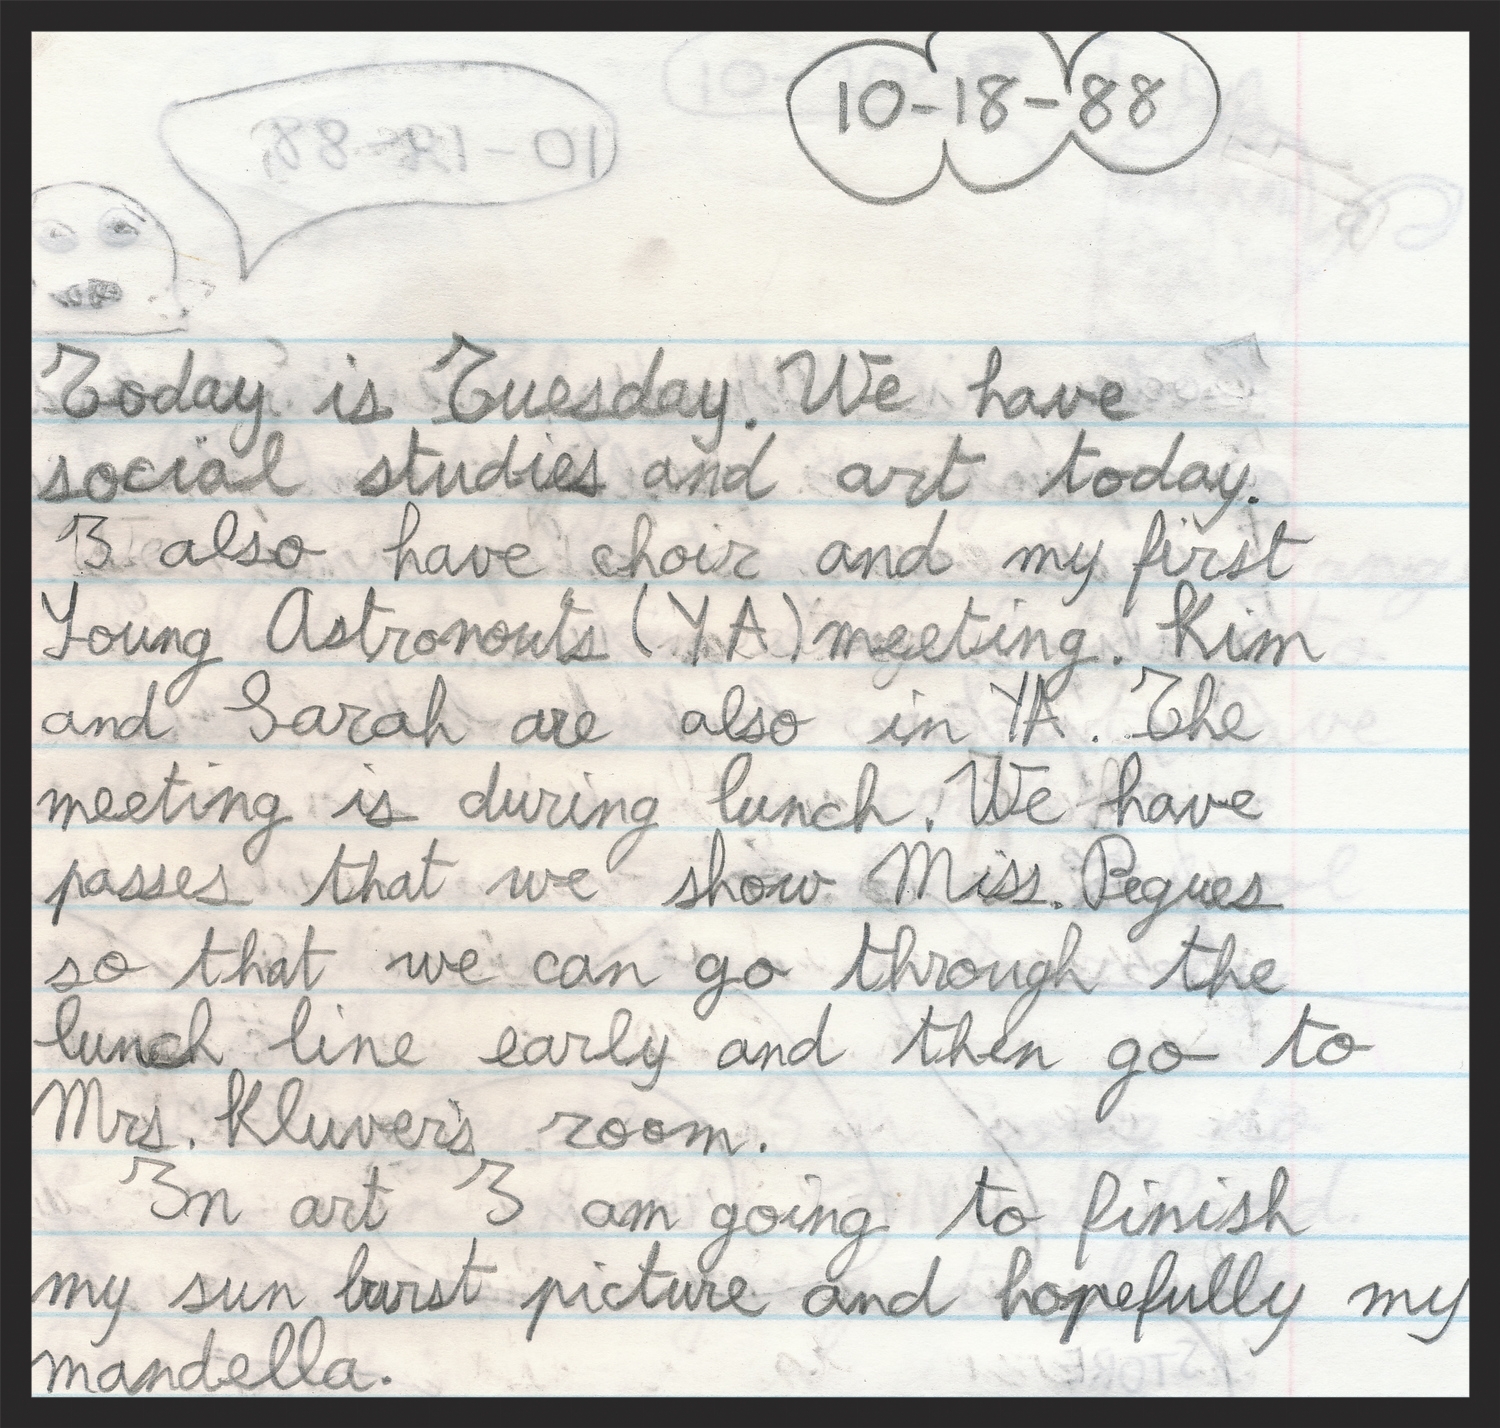 10-18-88
Today is Tuesday. We have
social studies and art today.
I also have choir and my first
Young Astronouts (YA) meeting. Kim
and Sarah are also in YA. The
meeting is during lunch. We have
passes that we show Miss. Pegues
so that we can go through the
lunch line early and then go to
Mrs. Kluver's room.
In art I am going to finish
my sun burst picture and hopefully my
mandella.